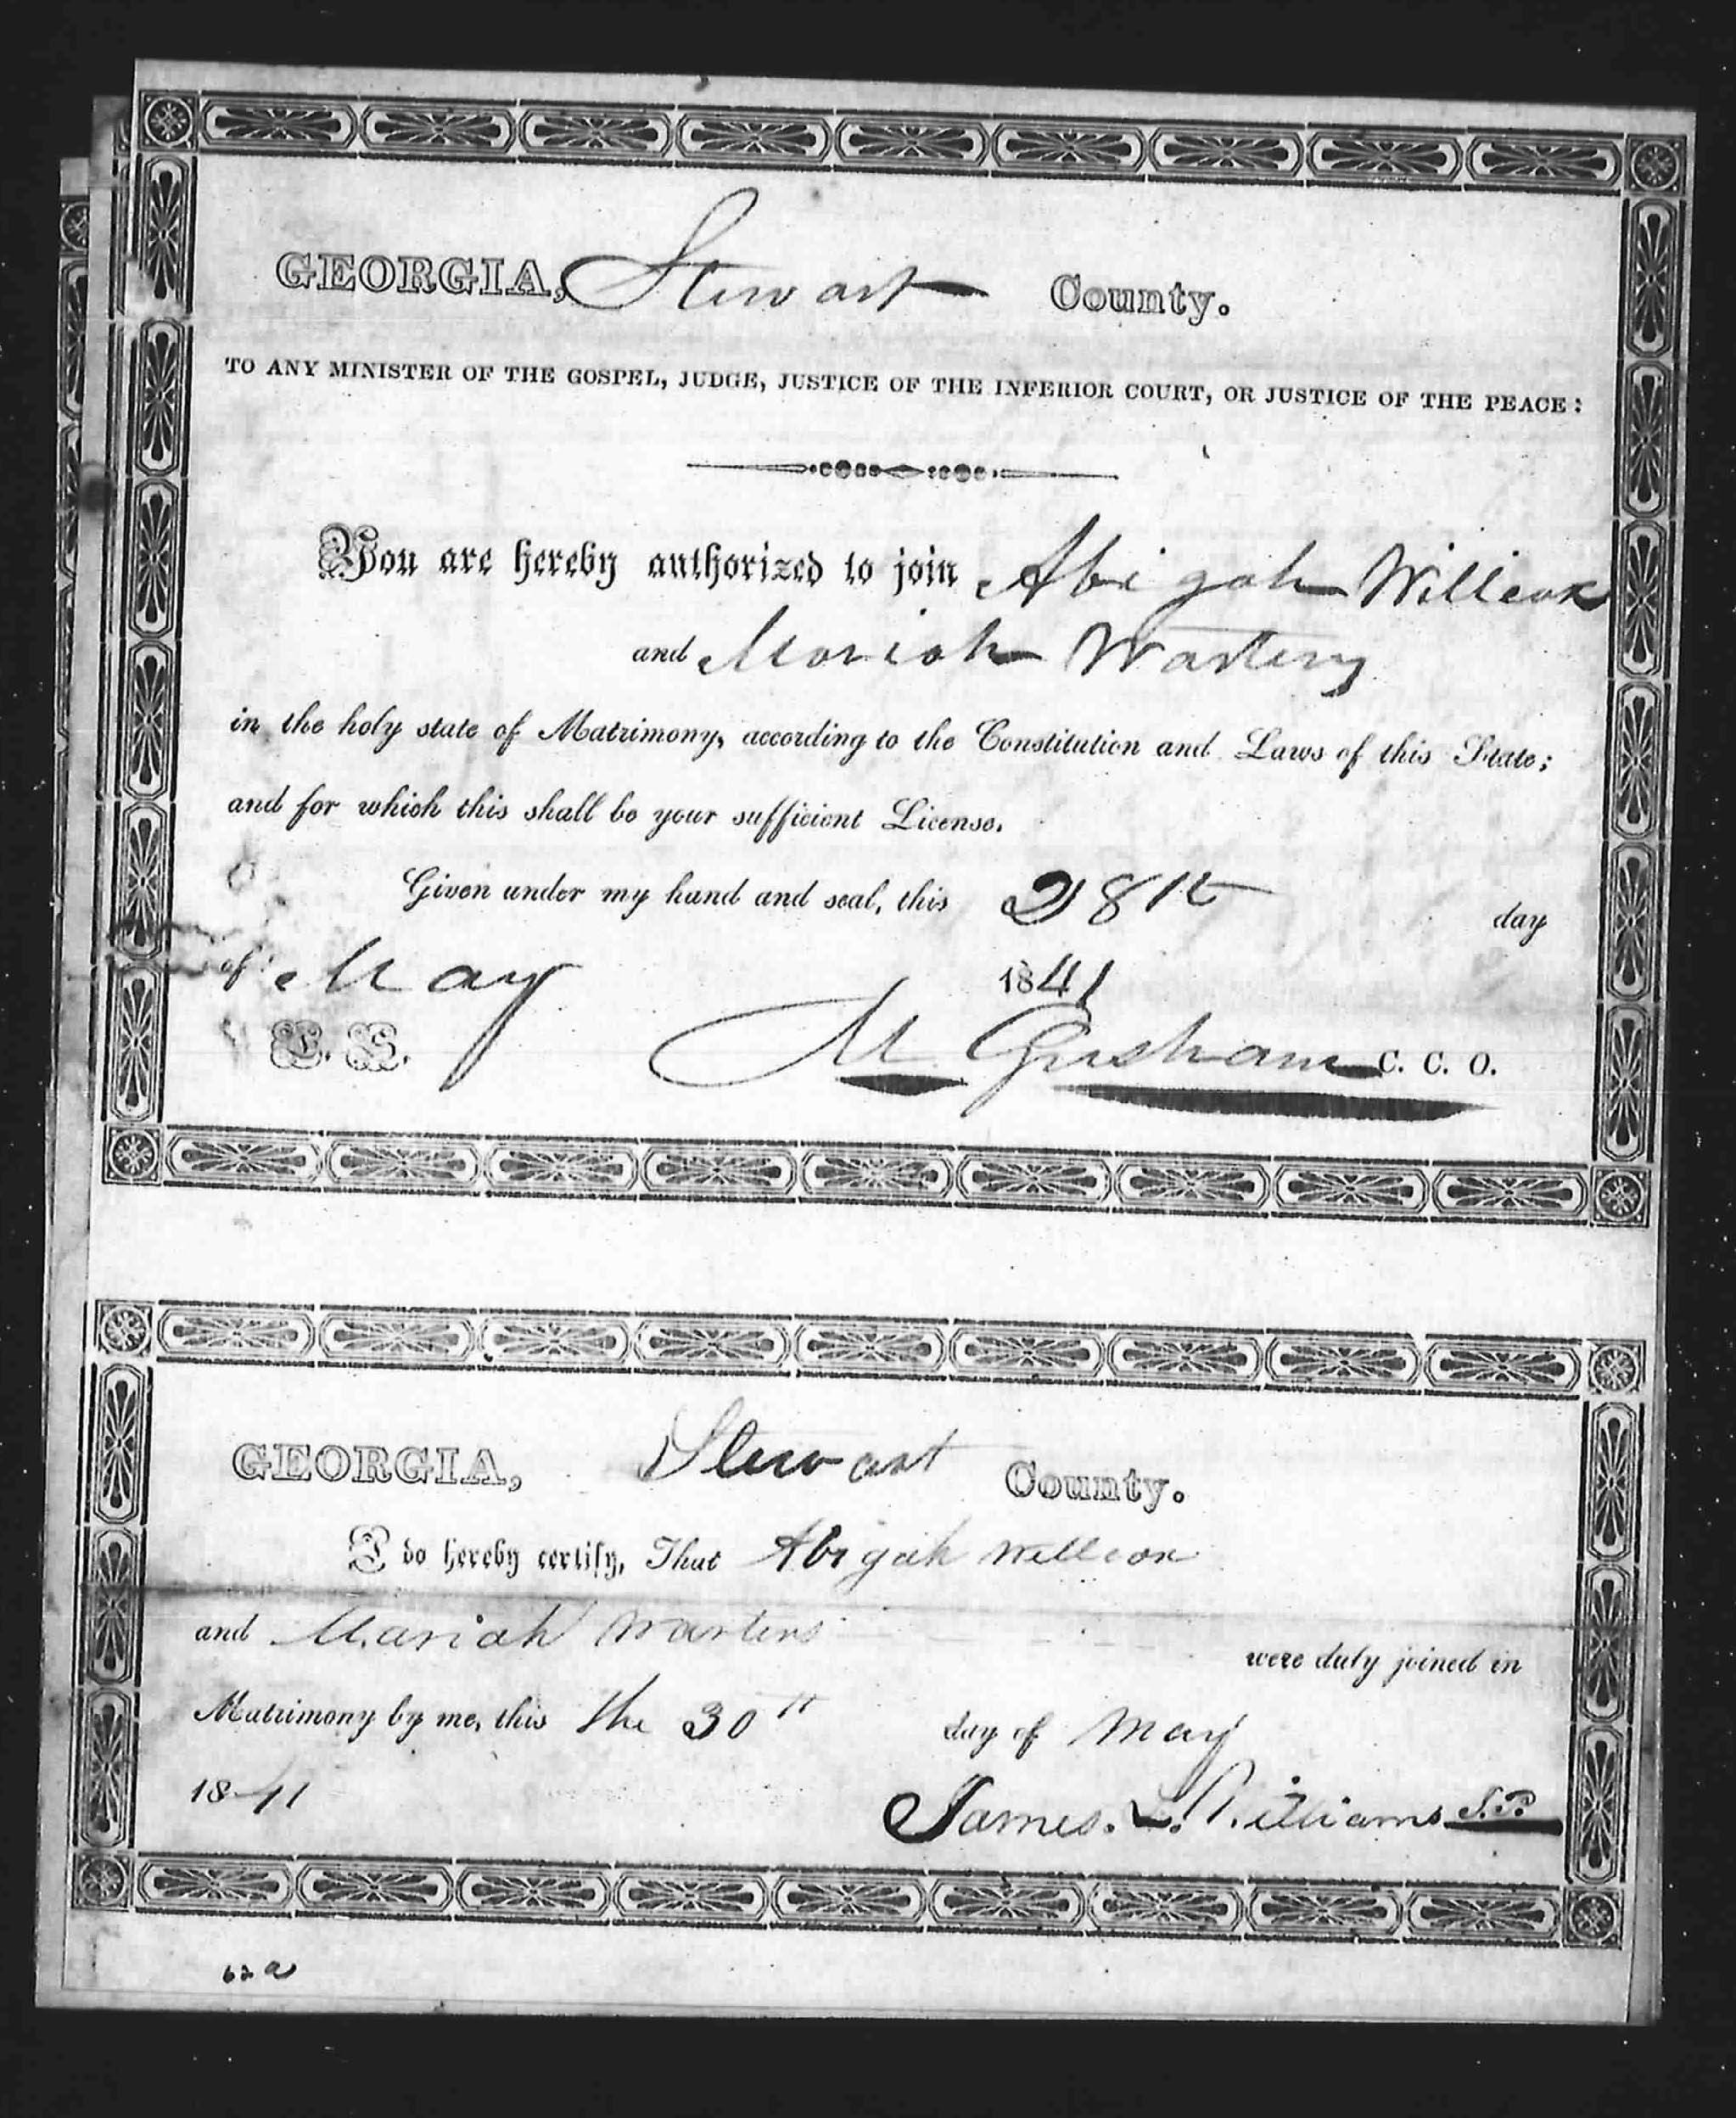 GEORGIA, Stewart County.
TO ANY MINISTER OF THE GOSPEL, JUDGE, JUSTICE OF THE INFERIOR COURT, OR JUSTICE OF THE PEACE:
You are hereby authorized to join Abigah Willcox
and Moriah Warters
in the holy state of Matrimony, according to the Constitution and Laws of this State;
and for which this shall be your sufficient License.
Given under my hand and seal, this 28th day
of May 1841
L. S. M Gresham C. C. O.
GEORGIA, Stewart County.
I do hereby certify, That Abigah Willcox
and Mariah Warters were duly joined in
Matrimony by me, this the 30th day of May
1841 James. L. Williams J.P.
62 a